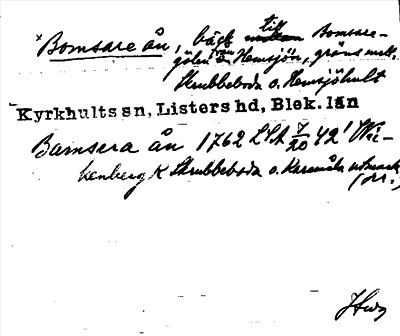 × Bomsare ån, bäck till Bomsare-
gölen från Hemsjön, gräns mell.
Skrubbeboda o. Hemsjöhult
Kyrkhults sn, Listers hd, Blek. län
Bamsera ån 1762 LSA 7/20 42' Wi-
kenberg K Skrubbeboda o. Karsmåla utmark